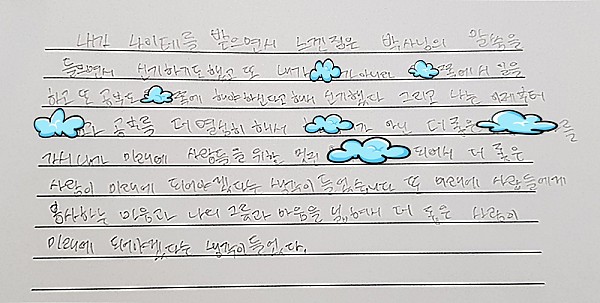 내가 나이테를 받으면서 느낀점은 박사님의 말씀을
들으면서 신기하기도했고 또 내가 가 아니라 로에서 일을
하고 또 공부도 에 해야하신다고해서 신기했다 그리고 나는 이제부터
공부를 더 열심히 해서 가 아닌 더좋은 를
가서 내가 미래에 사람들을 위한 멋진 되어서 더 좋은
사람이 미래에 되어야겠다는 생각이들었습니다 또 미래에 사람들에게
봉사하는 마음과 나의 그릇과 마음을 넓혀서 더 좋은 사람이
미래에 되어야겠다는 생각이들었다.